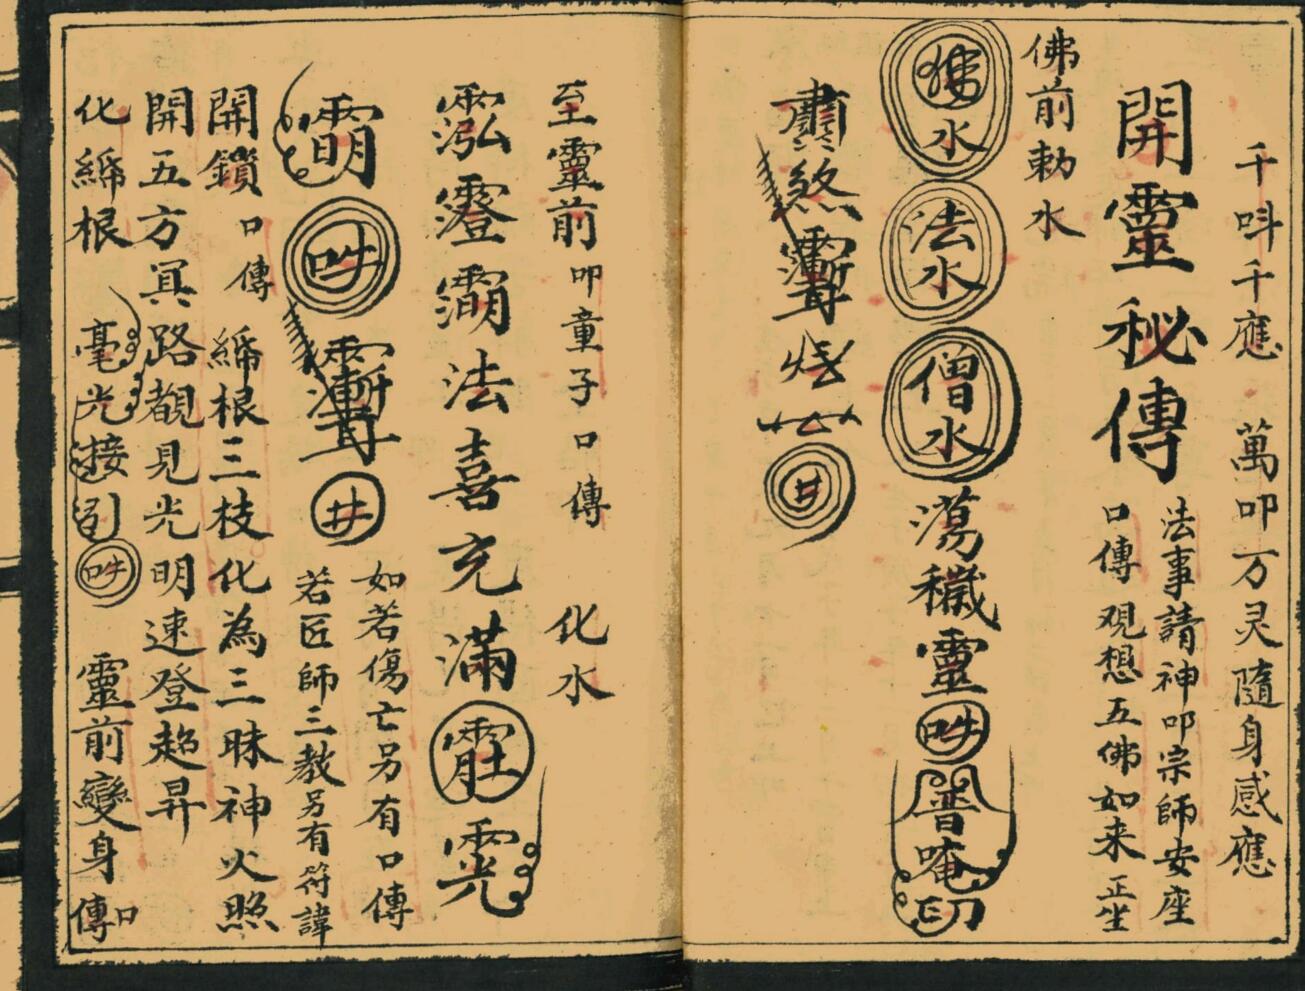 千呌千應 萬叩万灵隨身感應
開靈秘傳
法事請神叩宗師安座
口傳 观想五佛如来 正坐
佛前勅水
佛水 法水 僧水 蕩穢靈 吽 普唵印
煞 燒 井
至靈前 叩童子 口傳 化水
法喜充滿
吽 井
如若傷亡另有口傳
若匠師三教另有符諱
開鎖 口傳 締根三枝化為三昧神火照
開五方冥路覩見光明速登超昇
化締根 毫光接引 吽 靈前變身 口傳